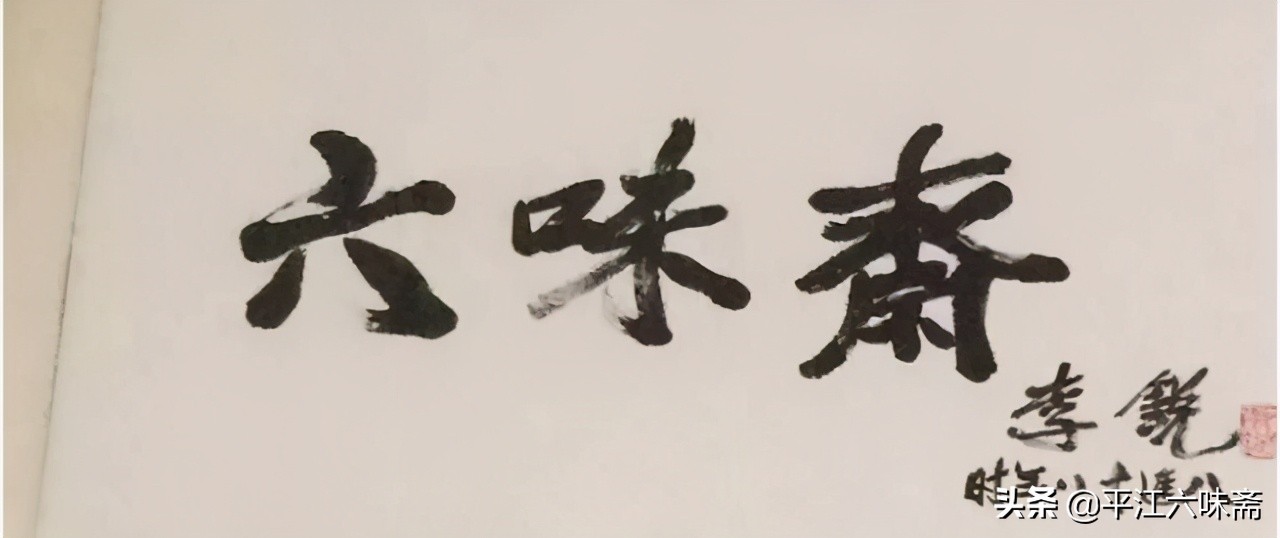 六味斋
李锐
时年八十
头条 @平江六味斋